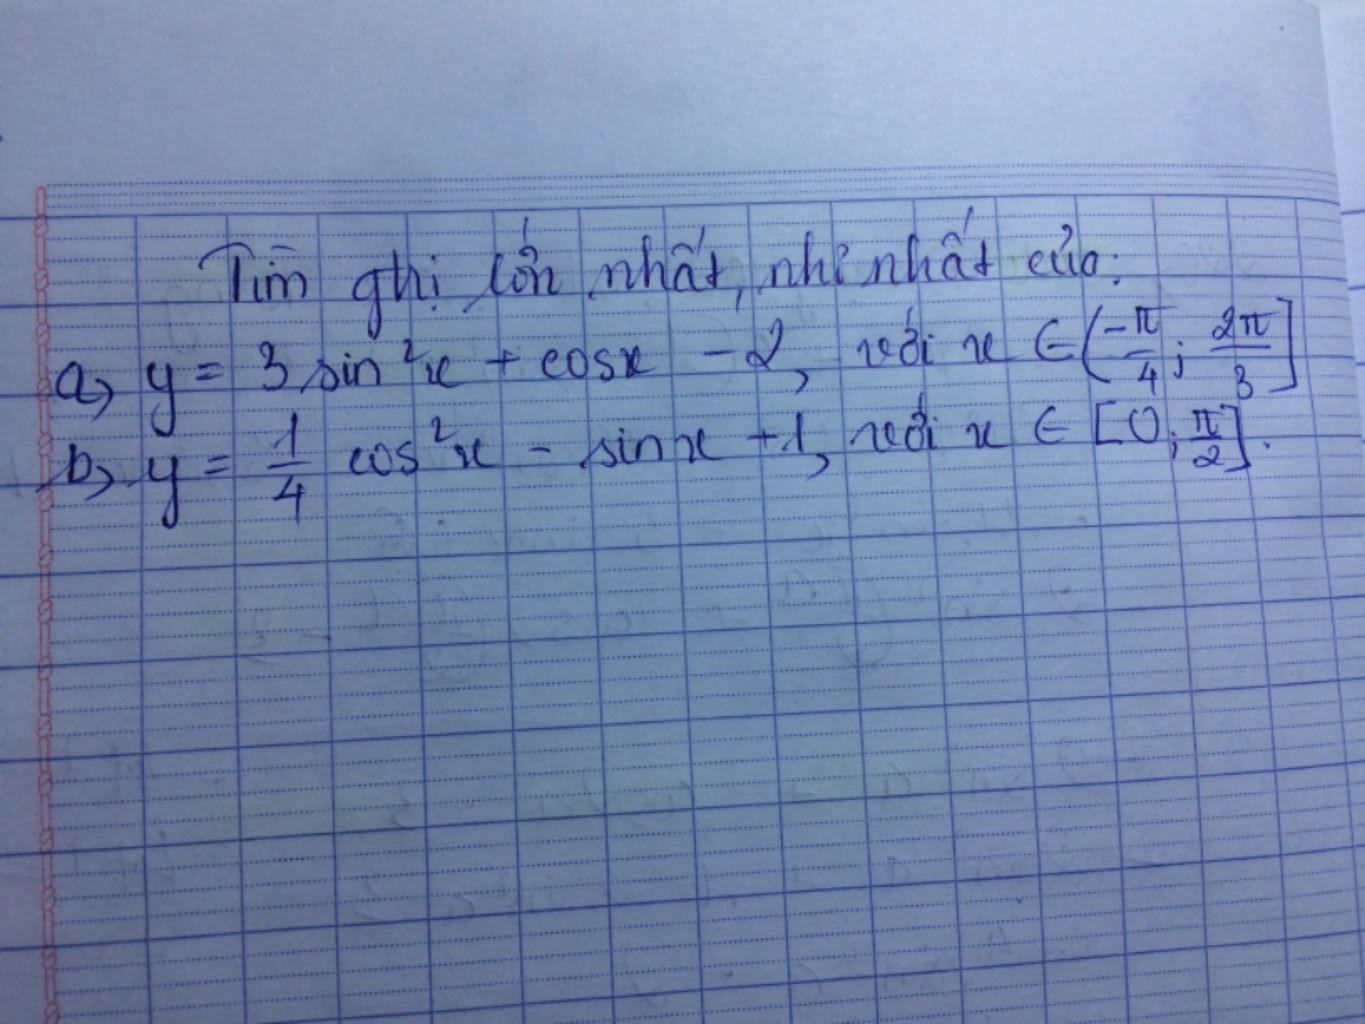 Tìm ghị lớn nhất, nhỏ nhất của:
a, y = 3 sin²x + cosx - 2, với x ∈ (-π/4; 2π/3]
b, y = 1/4 cos²x - sinx + 1, với x ∈ [0; π/2].